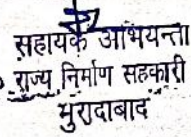 सहायक अभियन्ता
राज्य निर्माण सहकारी
मुरादाबाद